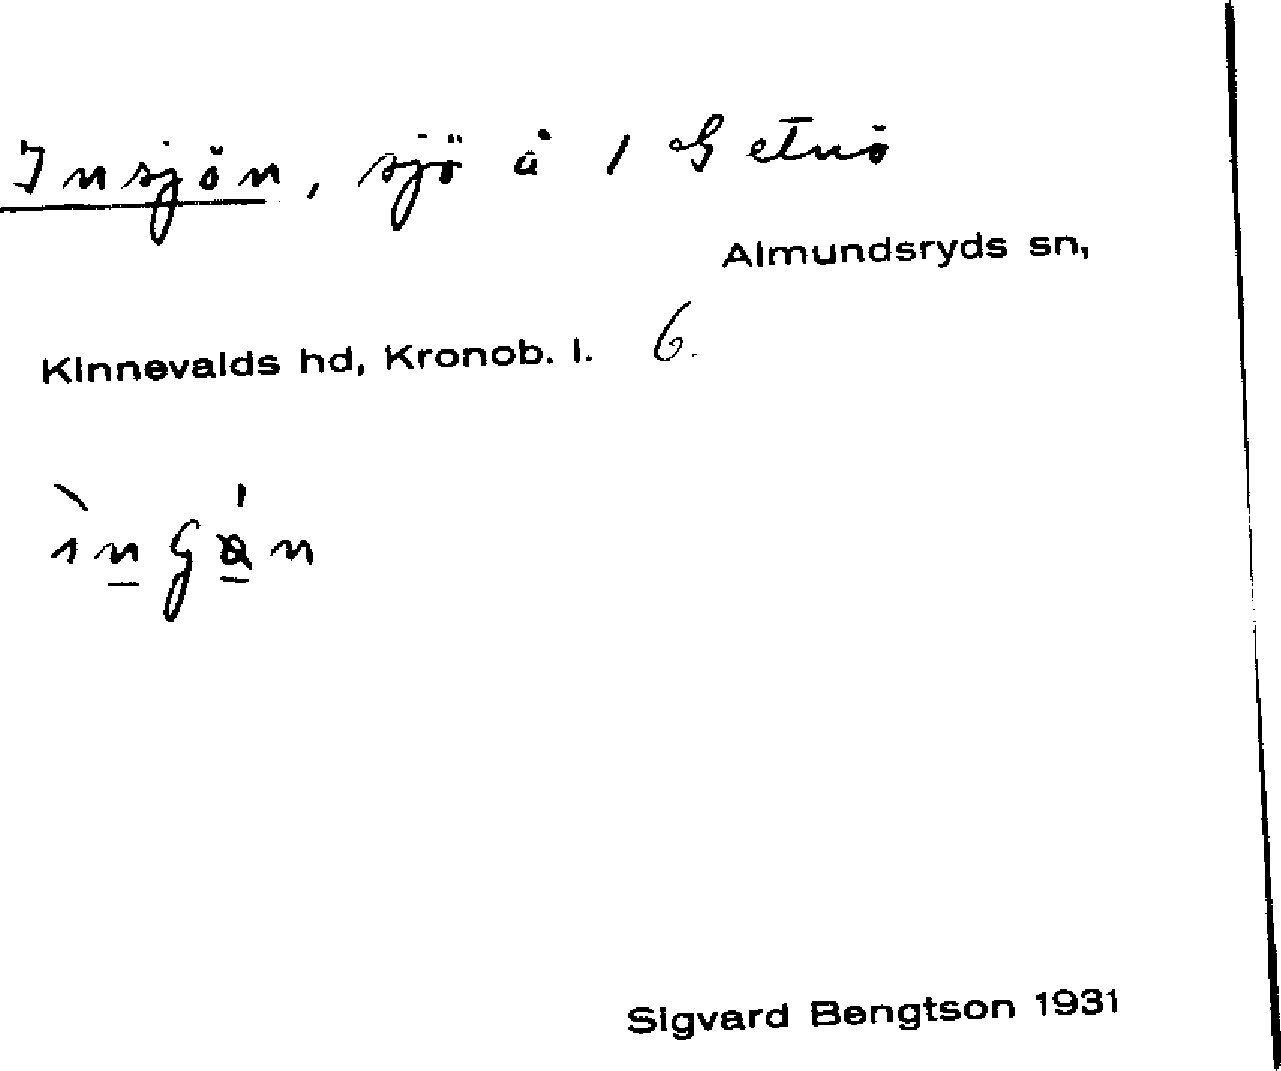 Insjön, sjö å / Getnö
Almundsryds sn,
Kinnevalds hd, Kronob. l. 6.
Sigvard Bengtson 1931